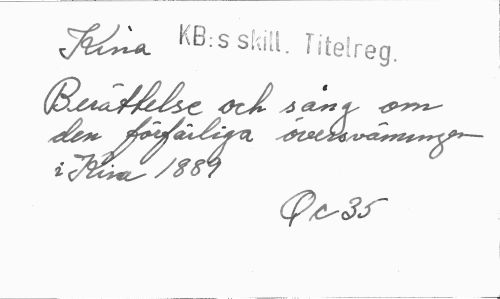 Kina KB:s skill. Titelreg.
Berättelse och sång om
den förfärliga översvämningen
i Kina 1889
Qc 35